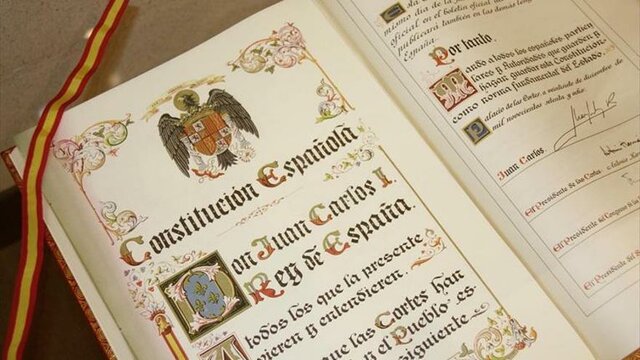 Constitución Española
Don Juan Carlos I,
Rey de España.
A todos los que la presente
vieren y entendieren
que las Cortes han
el Pueblo es-
siguiente
misma día de la
oficial en el boletín oficial
publicará también en las demás leng
España.
Por tanto,
Mando a todos los españoles, particu-
lares y Autoridades que guarden y
hagan guardar esta Constitución
como norma fundamental del Estado.
Palacio de las Cortes, a veintisiete de diciembre de
mil novecientos setenta y ocho.
Juan Carlos
El Presidente de las Cortes
El Presidente del Congreso de los
El Presidente del